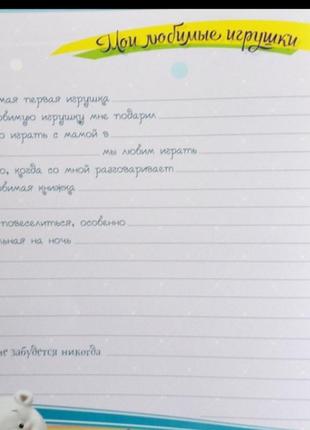 Мои любимые игрушки
мая первая игрушка
юбимую игрушку мне подарил
о играть с мамой в
мы любим играть
о, когда со мной разговаривает
юбимая книжка
повеселиться, особенно
льная на ночь
не забудется никогда